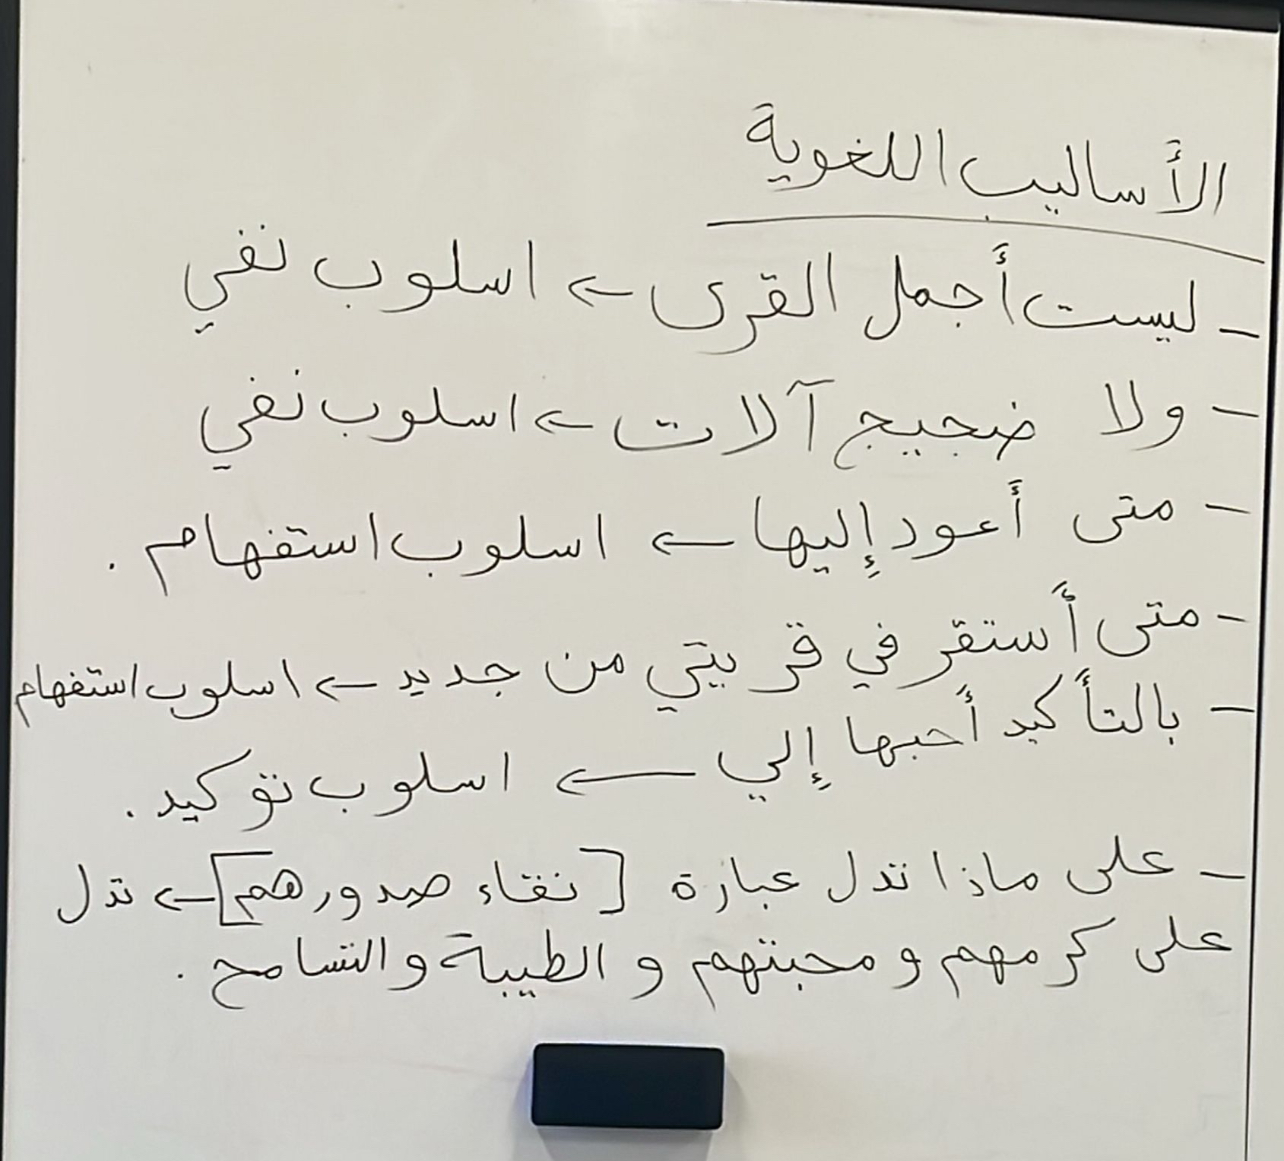 الأساليب اللغوية
- ليست أجمل القرى ← اسلوب نفي
- ولا ضجيج آلات ← اسلوب نفي
- متى أعود إليها ← اسلوب استفهام .
- متى أستقر في قريتي من جديد ← اسلوب استفهام
- بالتأكيد أحبها إلي ← اسلوب توكيد .
- على ماذا تدل عبارة [نقاء صدورهم] ← تدل
على كرمهم و محبتهم و الطيبة والتسامح .